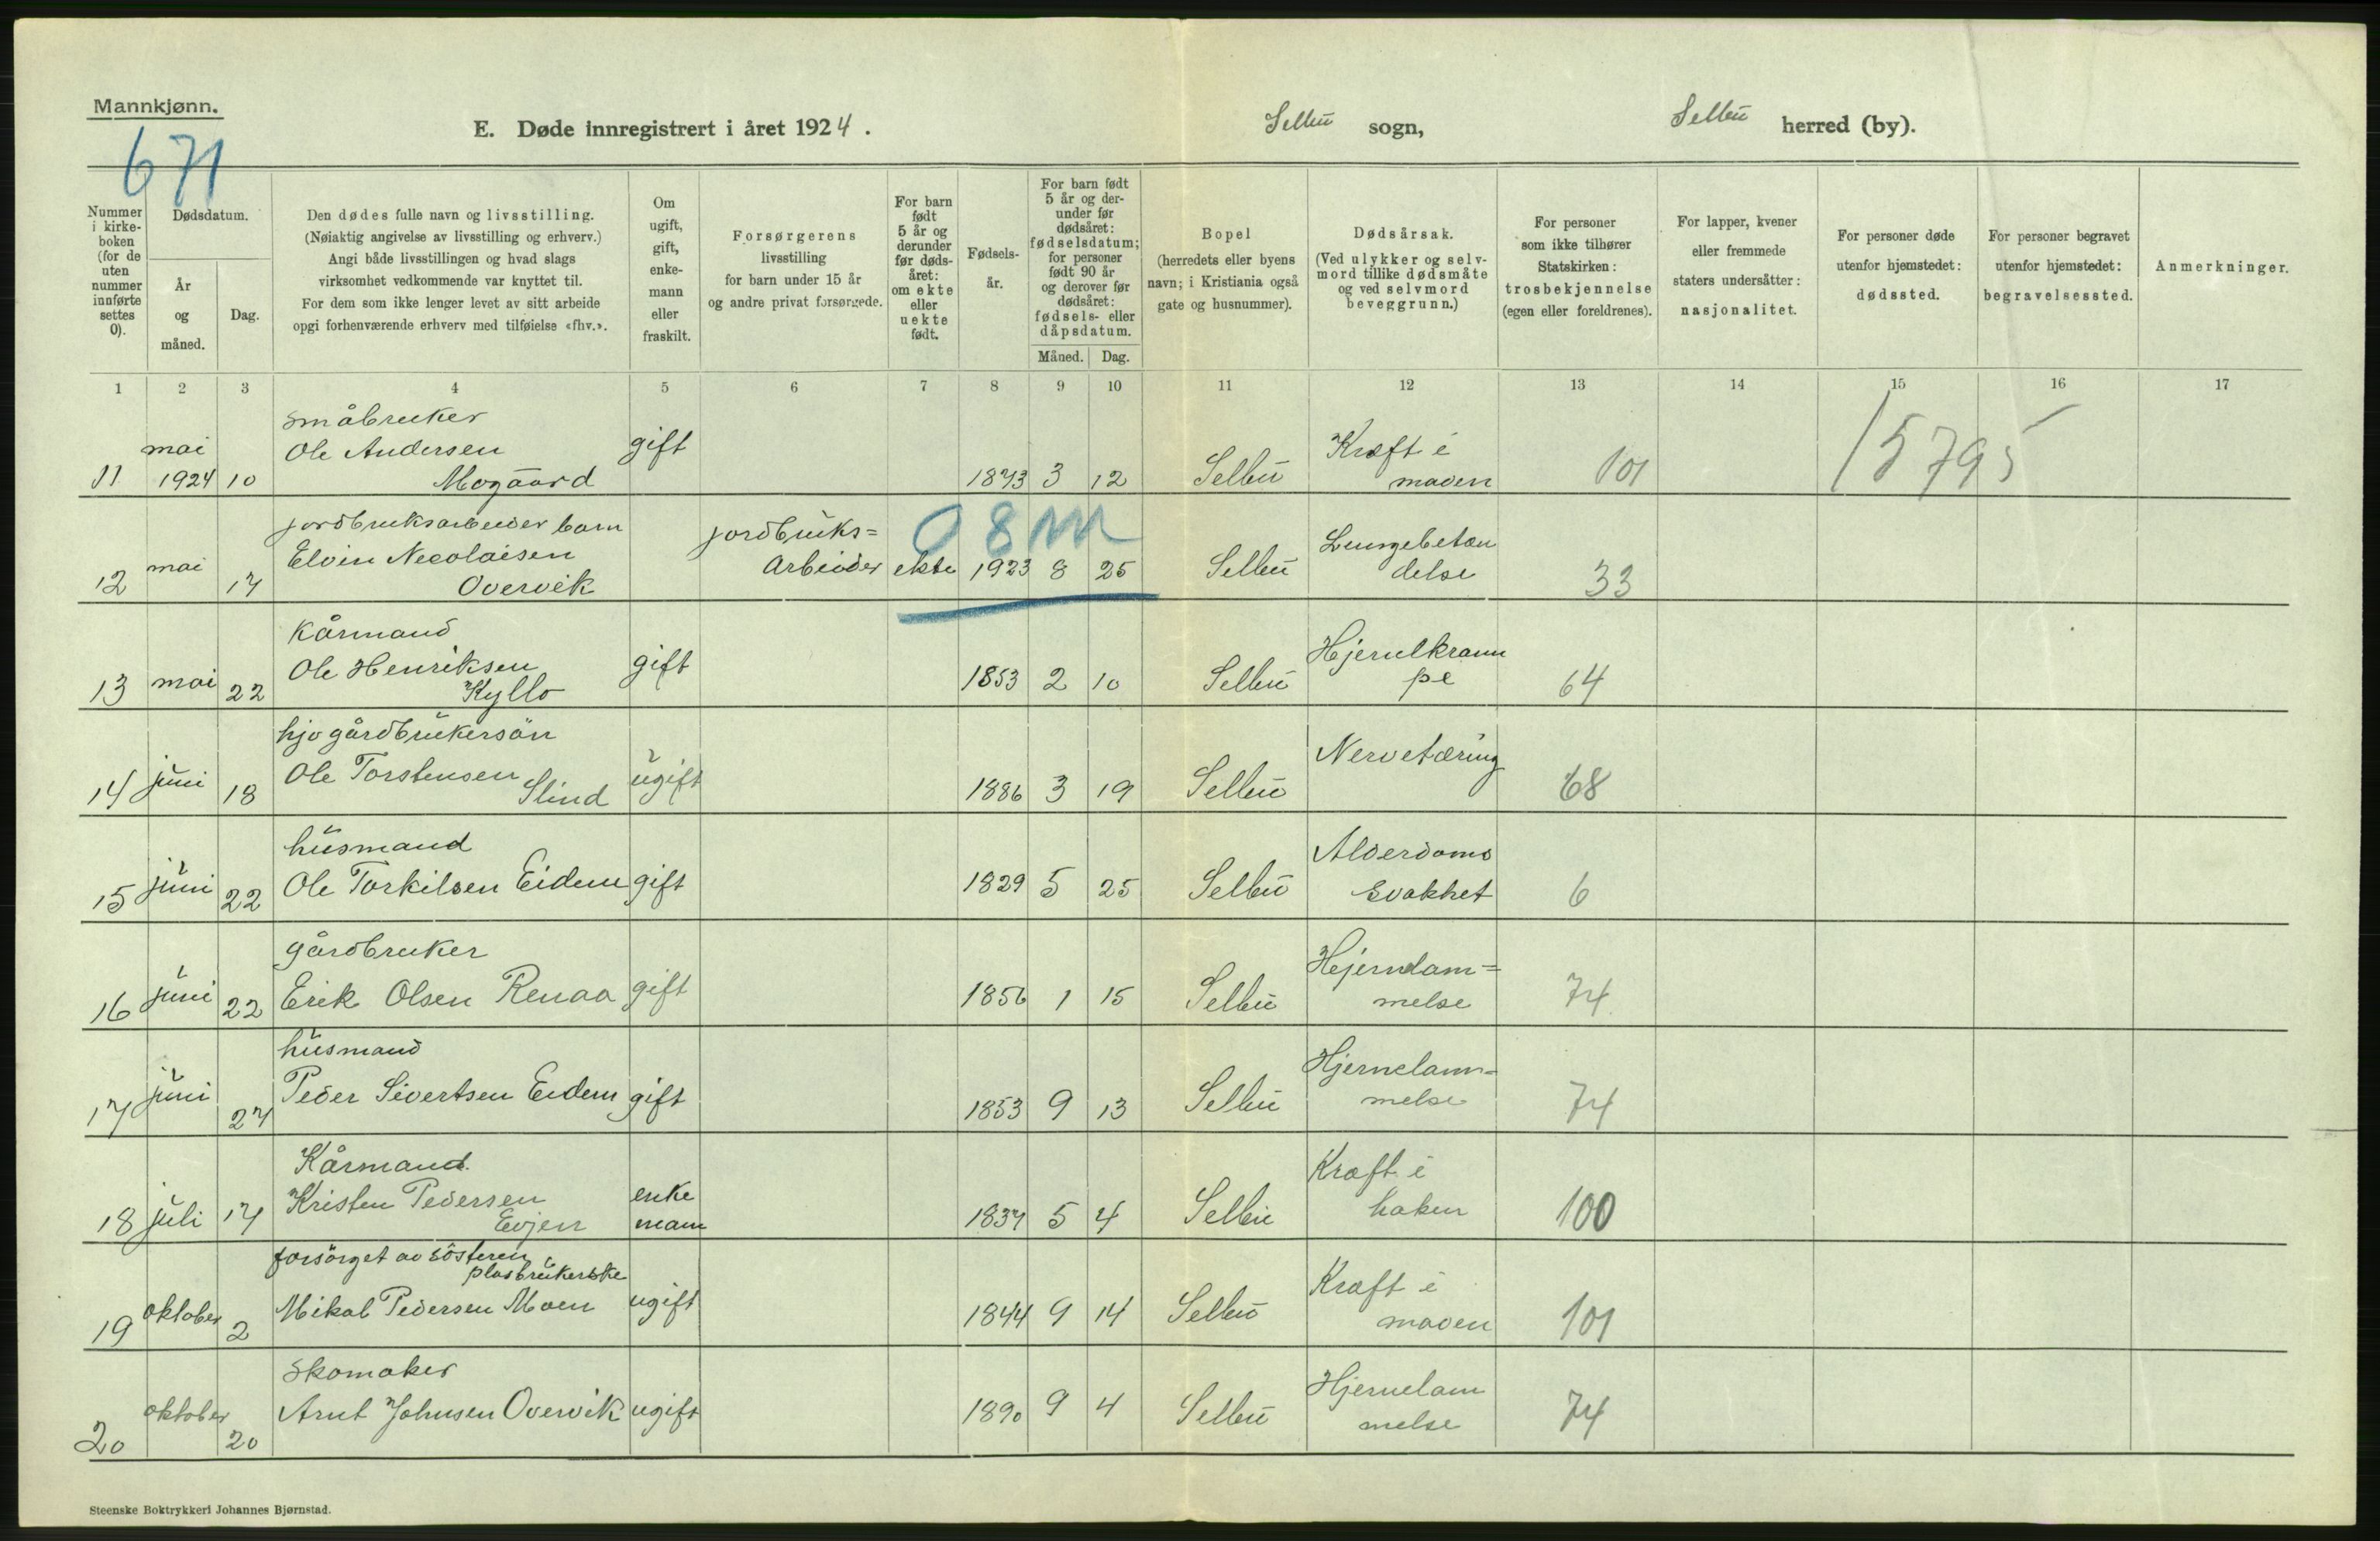 Mannkjønn.
671
E. Døde innregistrert i året 1924. Selbu sogn, Selbu herred (by).
Nummer i kirke-boken (for de uten nummer innførte settes 0).
Dødsdatum.
År og måned.
Dag.
Den dødes fulle navn og livsstilling.
(Nøiaktig angivelse av livsstilling og erhverv.)
Angi både livsstillingen og hvad slags
virksomhet vedkommende var knyttet til.
For dem som ikke lenger levet av sitt arbeide
opgi forhenværende erhverv med tilføielse «fhv.».
Om ugift, gift, enke-mann eller fraskilt.
Forsørgerens
livsstilling
for barn under 15 år
og andre privat forsørgede.
For barn født 5 år og derunder før døds-året: om ekte eller uekte født.
Fødsels-år.
For barn født 5 år og der-under før dødsåret: fødselsdatum; for personer født 90 år og derover før dødsåret: fødsels- eller dåpsdatum.
Måned. Dag.
Bopel
(herredets eller byens
navn; i Kristiania også
gate og husnummer).
Dødsårsak.
(Ved ulykker og selv-
mord tillike dødsmåte
og ved selvmord
beveggrunn.)
For personer
som ikke tilhører
Statskirken:
trosbekjennelse
(egen eller foreldrenes).
For lapper, kvener
eller fremmede
staters undersåtter:
nasjonalitet.
For personer døde
utenfor hjemstedet:
dødssted.
For personer begravet
utenfor hjemstedet:
begravelsessted.
Anmerkninger.
1 2 3 4 5 6 7 8 9 10 11 12 13 14 15 16 17
småbruker
mai Ole Andersen gift Kræft i
11 1924 10 Mogaard 1873 3 12 Selbu maven 101 15795
jordbruksarbeider barn jordbruks= 08m Lungebetæn
12 mai 17 Elvin Nicolaisen Overvik Arbeider ekte 1923 8 25 Selbu delse 33
Kårmand
13 mai 22 Ole Henriksen Kyllo gift 1853 2 10 Selbu Hjernekram
pe 64
gårdbrukersön
14 juni 18 Ole Torstensen Slind ugift 1886 3 19 Selbu Nervetæring 68
husmand Alderdoms
15 juni 22 Ole Torkilsen Eidem gift 1829 5 25 Selbu svakhet 6
gårdbruker Hjernelam=
16 juni 22 Erik Olsen Renaa gift 1856 1 15 Selbu melse 74
husmand Hjernelam=
17 juni 27 Peder Sivertsen Eidem gift 1853 9 13 Selbu melse 74
Kårmand Kræft i
18 juli 17 Kristen Pedersen Evjen enke mann 1837 5 4 Selbu haken 100
forsörget av sösteren plasbrukerske Kræft i
19 oktober 2 Mikal Pedersen Moen ugift 1844 9 14 Selbu maven 101
Skomaker Hjernelam
20 oktober 20 Arnt Johnsen Overvik ugift 1890 9 4 Selbu melse 74
Steenske Boktrykkeri Johannes Bjørnstad.